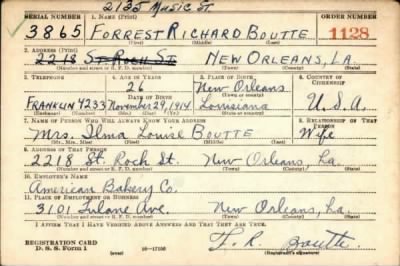 2135 Music St
SERIAL NUMBER 1. Name (Print) ORDER NUMBER
3865 FORREST RICHARD BOUTTE 1128
(First) (Middle) (Last)
2. Address (Print)
2218 St Roch St. NEW ORLEANS, LA.
(Number and street or R. F. D. number) (Town) (County) (State)
3. Telephone 4. Age in Years 5. Place of Birth 6. Country of Citizenship
26 New Orleans
Date of Birth (Town or county)
FRANKLIN 9233 November 29, 1914 Louisiana U.S.A.
(Exchange) (Number) (Mo.) (Day) (Yr.) (State or country)
7. Name of Person Who Will Always Know Your Address 8. Relationship of That Person
Mrs. Ilma Louise Boutte Wife
(Mr., Mrs., Miss) (First) (Middle) (Last)
9. Address of That Person
2218 St. Roch St. New Orleans, La.
(Number and street or R. F. D. number) (Town) (County) (State)
10. Employer's Name
American Bakery Co.
11. Place of Employment or Business
3101 Tulane Ave. New Orleans, La.
(Number and street or R. F. D. number) (Town) (County) (State)
I Affirm That I Have Verified Above Answers and That They Are True.
F. R. Boutte
REGISTRATION CARD
D. S. S. Form 1 (over) (Registrant's signature)